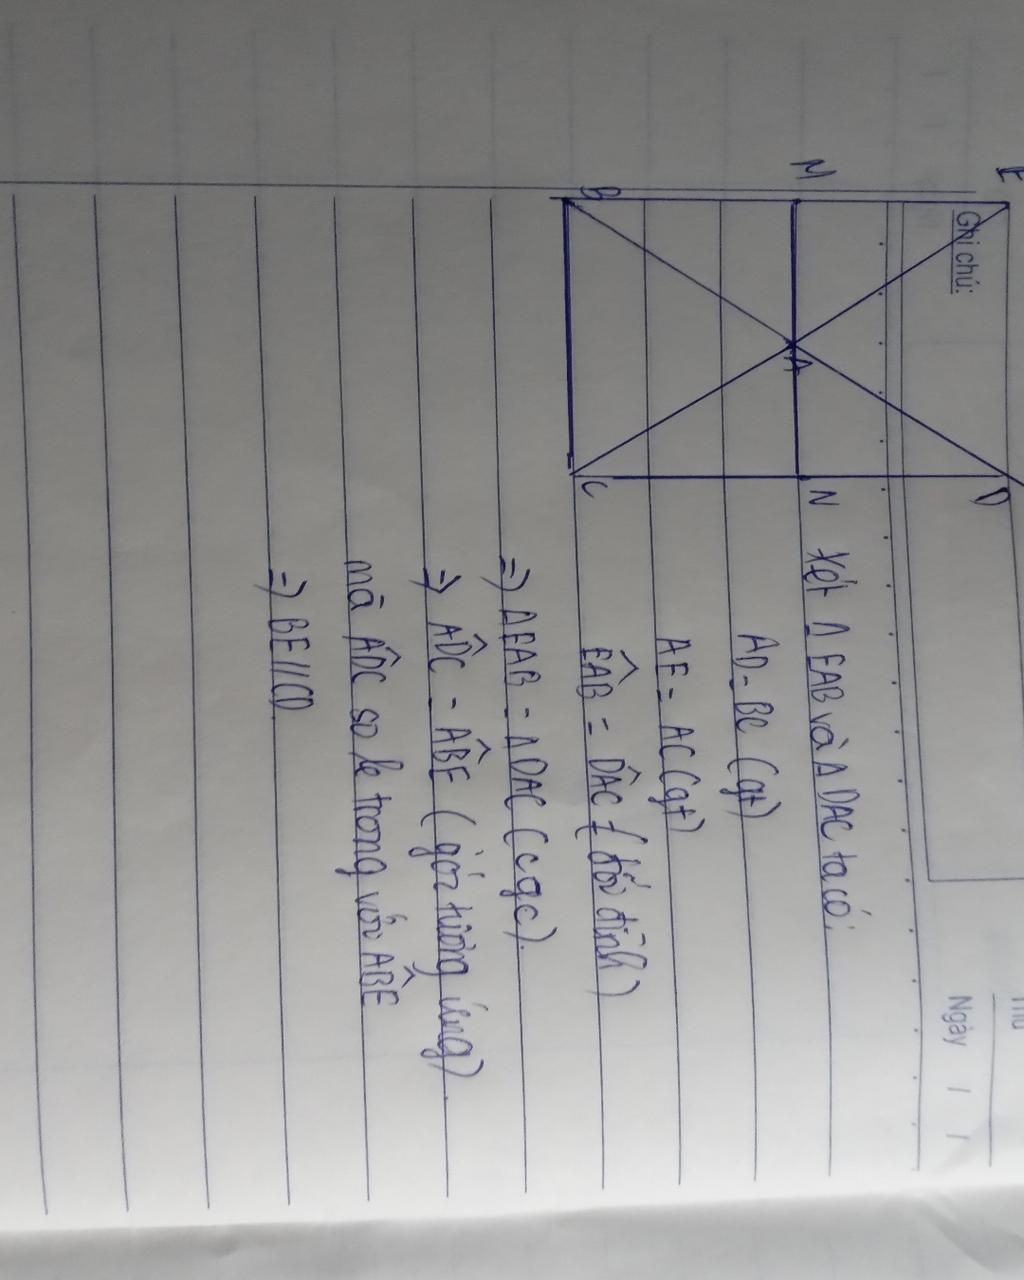 Thứ
Ngày / /
Ghi chú:
E
D
M
A
N
B
C
Xét Δ EAB và Δ DAC ta có:
AD = BC (gt)
AE = AC (gt)
EÂB = DÂC (đối đỉnh)
=) ΔEAB = ΔDAC (cgc).
=) AD̂C = AB̂E (góc tương ứng)
mà AD̂C so le trong với AB̂E
=) BE//CD.